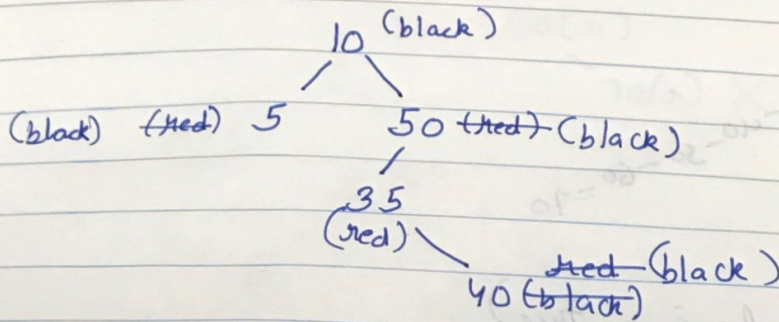 10 (black)
(black) (red) 5 50 (red) (black)
35
(red)
red (black)
40 (black)